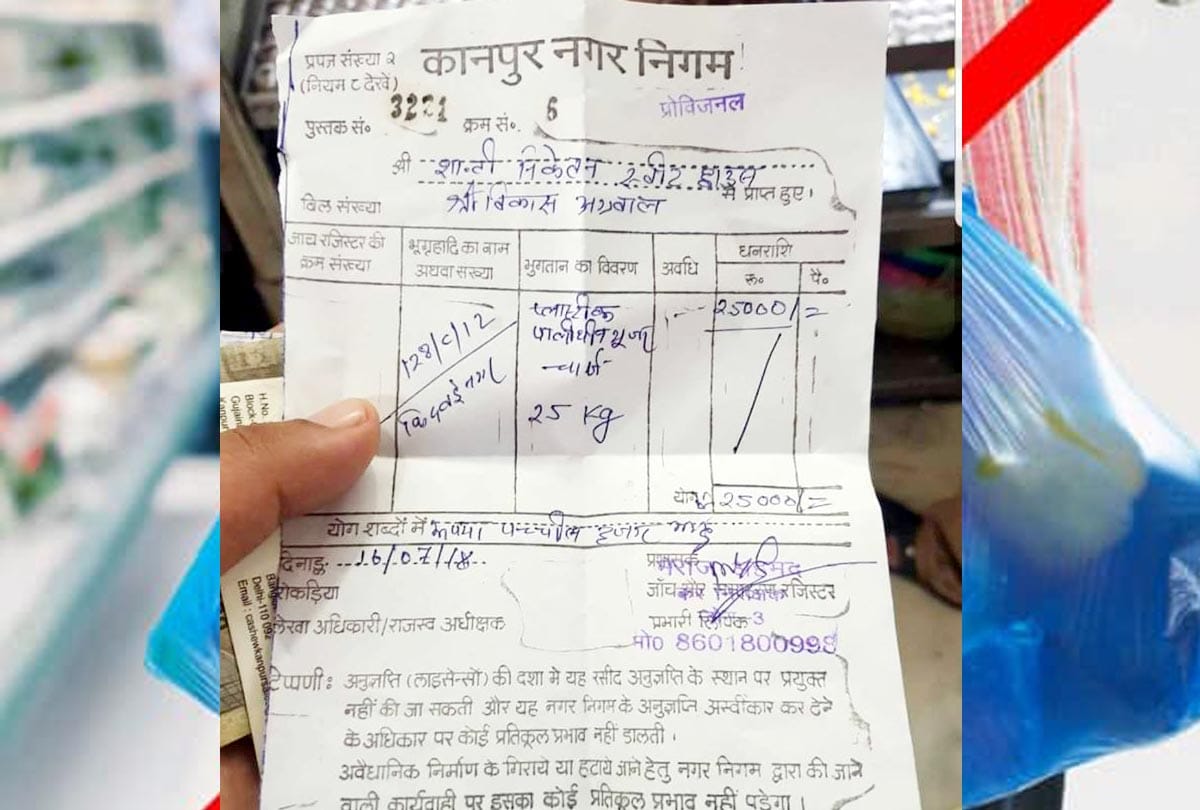 प्रपत्र संख्या २
(नियम ८ देखें)
कानपुर नगर निगम
पुस्तक सं० 3221 क्रम सं० 6
प्रोविजनल
श्री शान्ती निकेतन स्वीट हाउस
से प्राप्त हुए।
बिल संख्या श्री विकास अग्रवाल
जाच रजिस्टर की क्रम संख्या
भूगृहादि का नाम अथवा सख्या
भुगतान का विवरण
अवधि
धनराशि
रू० पै०
128/C/12
किदवई नगर
प्लास्टिक
पालीथीन यूजर
चार्ज
25 Kg
25000/=
योग 25000/=
योग शब्दों में रूपया पच्चीस हजार मात्र
दिनाङ्क 16/07/18
रोकड़िया
लेखा अधिकारी/राजस्व अधीक्षक
जाँच रजिस्टर
प्रभारी लिपिक
जोन 3
मो० 8601800998
टिप्पणी: अनुज्ञप्ति (लाइसेन्सों) की दशा मे यह रसीद अनुज्ञप्ति के स्थान पर प्रयुक्त
नहीं की जा सकती और यह नगर निगम के अनुज्ञप्ति अस्वीकार कर देने
के अधिकार पर कोई प्रतिकूल प्रभाव नहीं डालती।
अवैधानिक निर्माण के गिराये या हटाये जाने हेतु नगर निगम द्वारा की जाने
वाली कार्यवाही पर इसका कोई प्रतिकूल प्रभाव नहीं पड़ेगा।
H.No.
Block-
Delhi-110 092